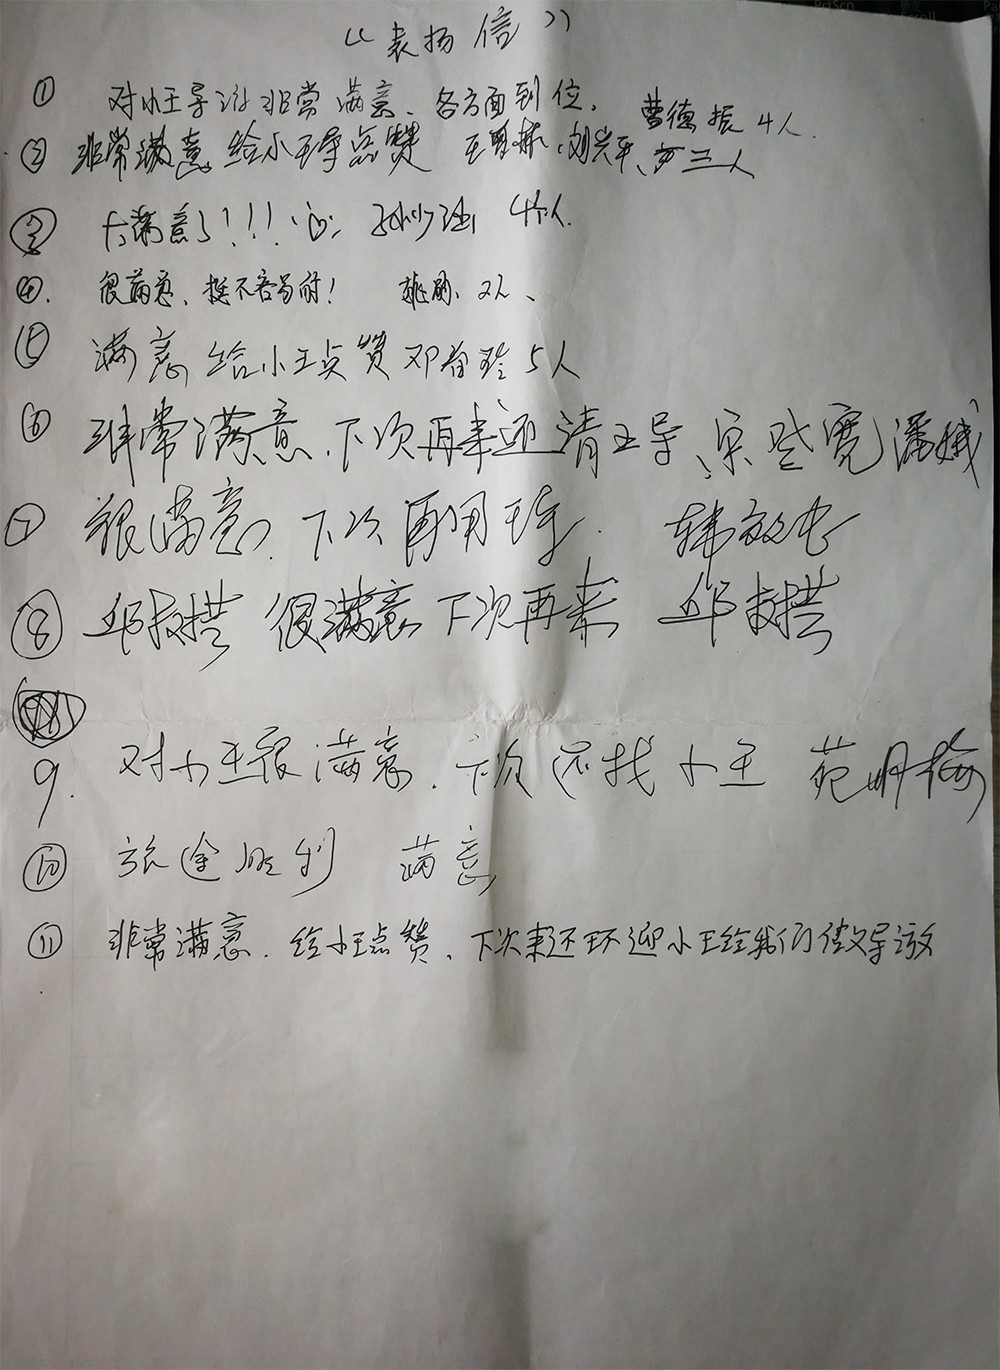 《表扬信》
① 对小王导游非常满意、各方面到位、曹德振 4人.
② 非常满意 给小王导点赞 王 刘兴平、 三人
③ 太满意了!!! 4个人.
④. 很满意、挺不容易的! 2人、
⑤ 满意 给小王点赞 邓春玲 5人
⑥ 非常满意、下次再来还请王导、 宽 潘娥
⑦ 很满意. 下次再用王导. 韩
⑧ 邱 很满意 下次再来 邱
9. 对小王很满意. 下次还找小王 范明梅
⑩ 旅途顺利 满意
⑪ 非常满意. 给小王点赞、下次来还环迎小王给我们做导游